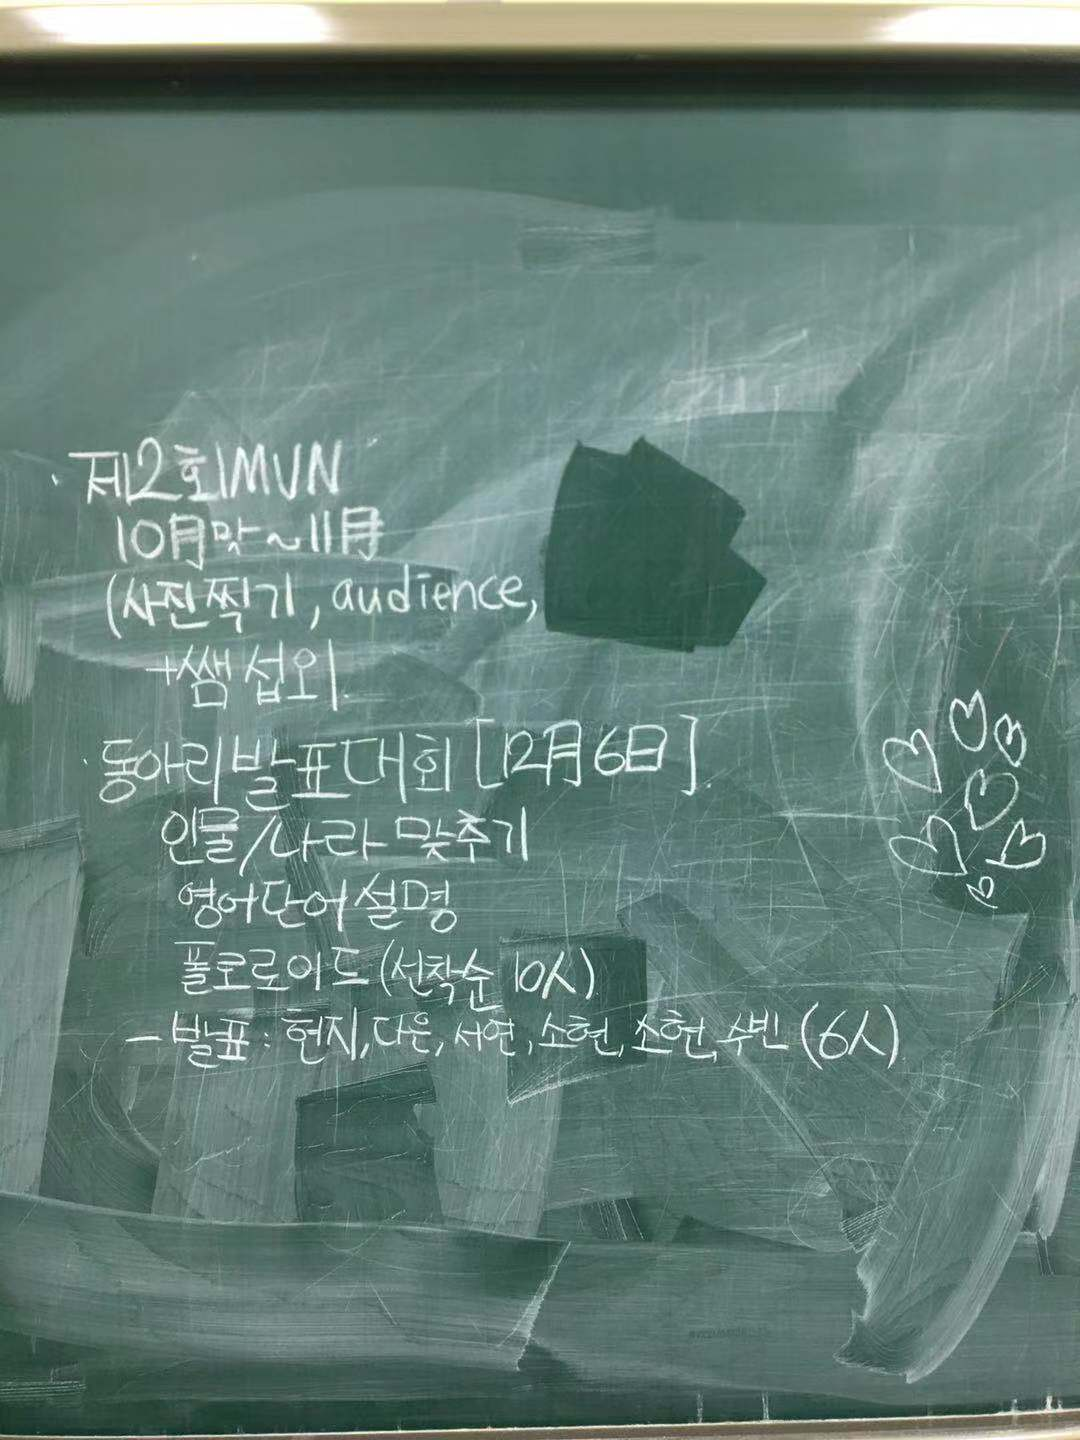 · 제2회 IMUN
10月 말 ~ 11月
(사진찍기, audience,
+쌤 섭외.
· 동아리발표대회 [12月 6日].
인물/나라 맞추기
영어단어설명
폴로로이드 (선착순 10人)
- 발표 : 현지, 다은, 서연, 소현, 소현, 수빈 (6人)